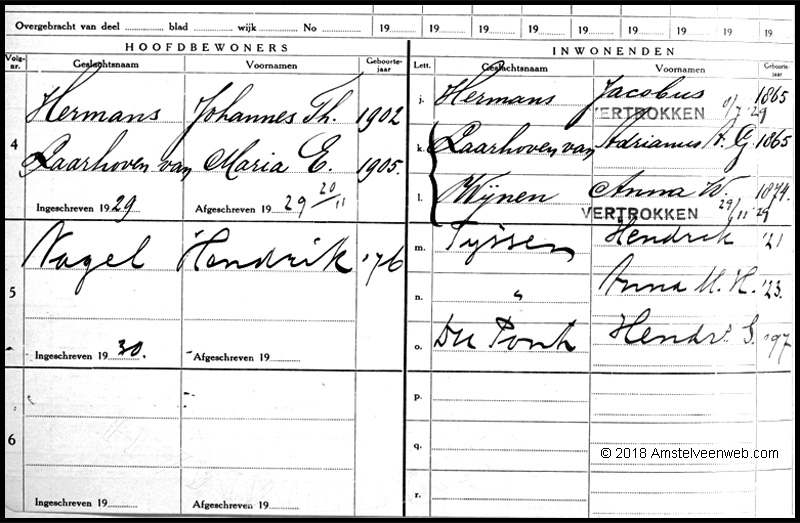 Overgebracht van deel blad wijk No 19 19 19 19 19 19 19 19
HOOFDBEWONERS INWONENDEN
Volg-nr. Geslachtsnaam Voornamen Geboorte-jaar Lett. Geslachtsnaam Voornamen Geboorte-jaar
4 Hermans Johannes Th. 1902
Laarhoven van Maria E. 1905.
Ingeschreven 1929 Afgeschreven 19 29 20/11
5 Nagel Hendrik '76
Ingeschreven 19 30. Afgeschreven 19
6
Ingeschreven 19 Afgeschreven 19
j. Hermans Jacobus 1865
VERTROKKEN /7 '29
k. Laarhoven van Adrianus A. G 1865
l. Wijnen Anna W. 1874.
VERTROKKEN 29/11 29
m. Tijssen Hendrik '21
n. " Anna M. H. '23.
o. Du Pont Hendr. S.
p.
q.
r.
© 2018 Amstelveenweb.com